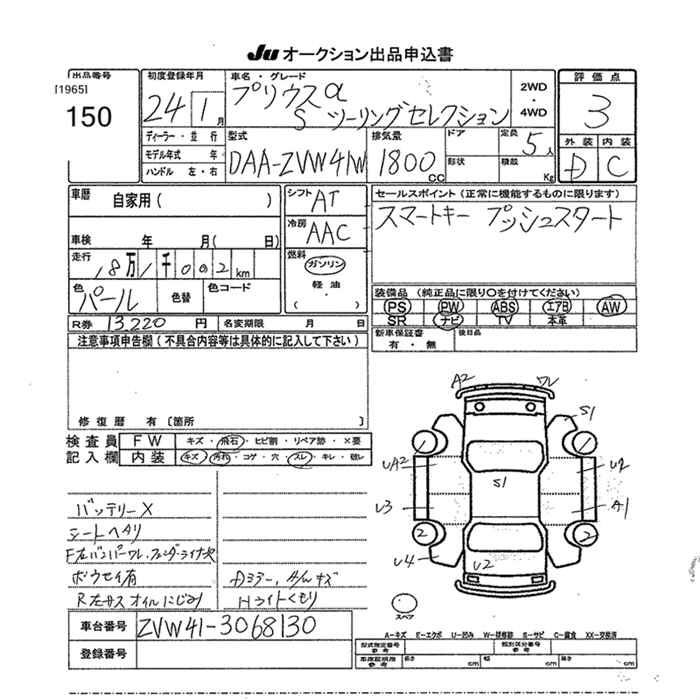 Ju オークション出品申込書
出品番号
[1965]
150
初度登録年月
24 1 月
車名・グレード
プリウスα
S ツーリングセレクション
2WD
・
4WD
評価点
3
外装 内装
D C
ディーラー・並行
モデル年式 年
ハンドル 左・右
型式
DAA-ZVW41W
排気量
1800 CC
ドア
形状
定員 5人
積載 Kg
車歴
自家用 ( )
車検 年 月( 日)
走行 18万1千002km
色 パール
色替
色コード
R券 13,220 円 名変期限 月 日
シフト AT
冷房 AAC
燃料
ガソリン
軽油
・
( )
セールスポイント (正常に機能するものに限ります)
スマートキー プッシュスタート
装備品 (純正品に限り○を付けてください)
PS PW ABS エアB AW
SR ナビ TV 本革
新車保証書
有・無
後日品
注意事項申告欄 (不具合内容等は具体的に記入して下さい)
修復歴 有〔箇所 〕
検査員
記入欄
FW キズ・飛石・ヒビ割・リペア跡・×要
内装 キズ・汚れ・コゲ・穴・スレ・キレ・破レ
バッテリーX
シートヘタリ
F左バンパーワレ、フェンダーライナー欠
ボウセイ有
R左サス オイルにじみ
Dミラー、A/wキズ
Hライトくもり
車台番号 ZVW41-3068130
登録番号
A2 ワレ
S1
UA2
U2
S1
U3
A1
2
2
U4
U2
スペア
A-キズ E-エクボ U-凹み W-補修跡 S-サビ C-腐食 XX-交換済
型式指定番号
参考
類別区分番号
参考
車庫証明用
参考
長さ cm 幅 cm 高さ cm